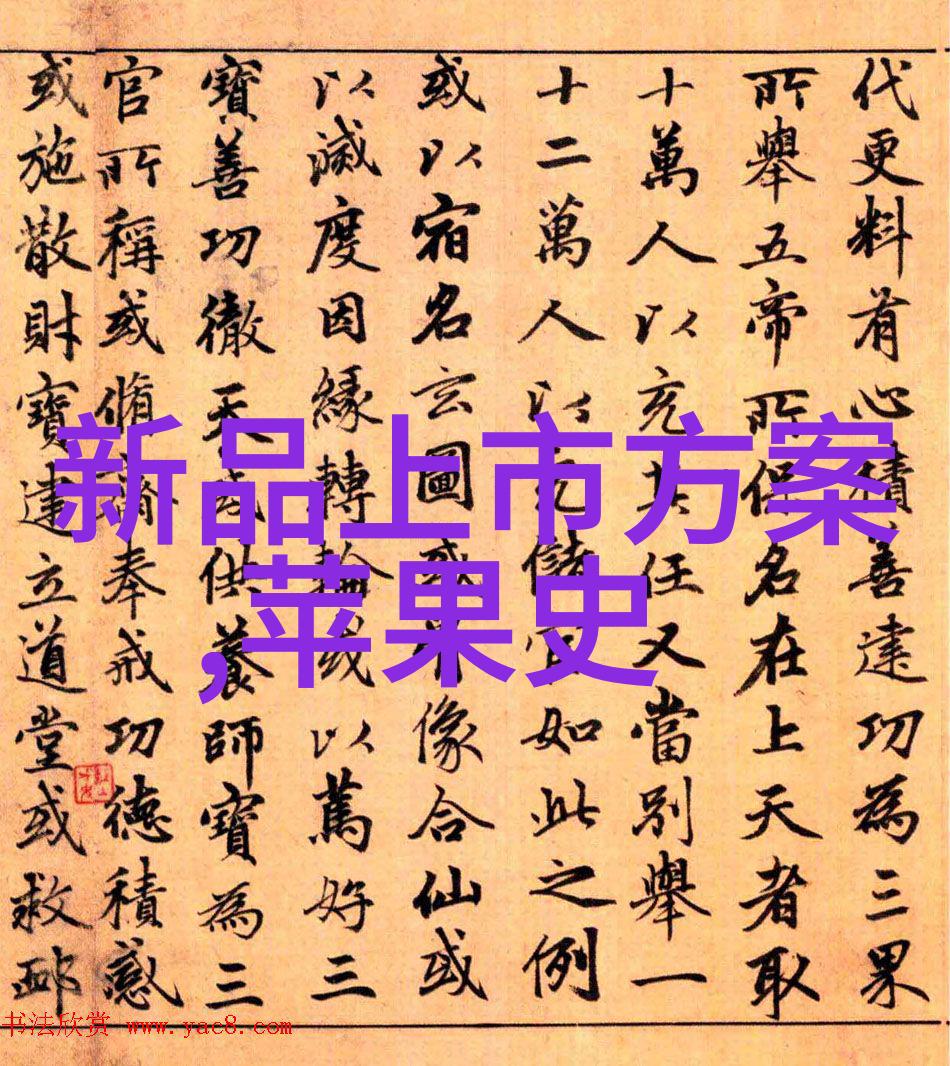 代更料有心積善建功為三果
所舉五帝所保名在上天者取
十萬人以充其任又當別舉一
十二萬人以充儲官如此之例
或以宿名玄圖或以像合仙或
以滅度因緣轉輪或以篤好三
寶善功徹天或供養師寶為三
官所稱或脩齋奉戒功德積感
或施散財寶建立道堂或救邮
新品上市方案
,苹果史
书法欣赏 www.yac8.com